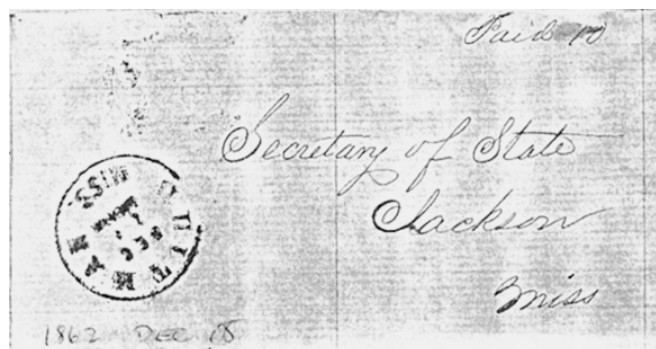 Paid 10
Secretary of State
Jackson
Miss
QUITMAN
MISS.
DEC
1862 DEC 15